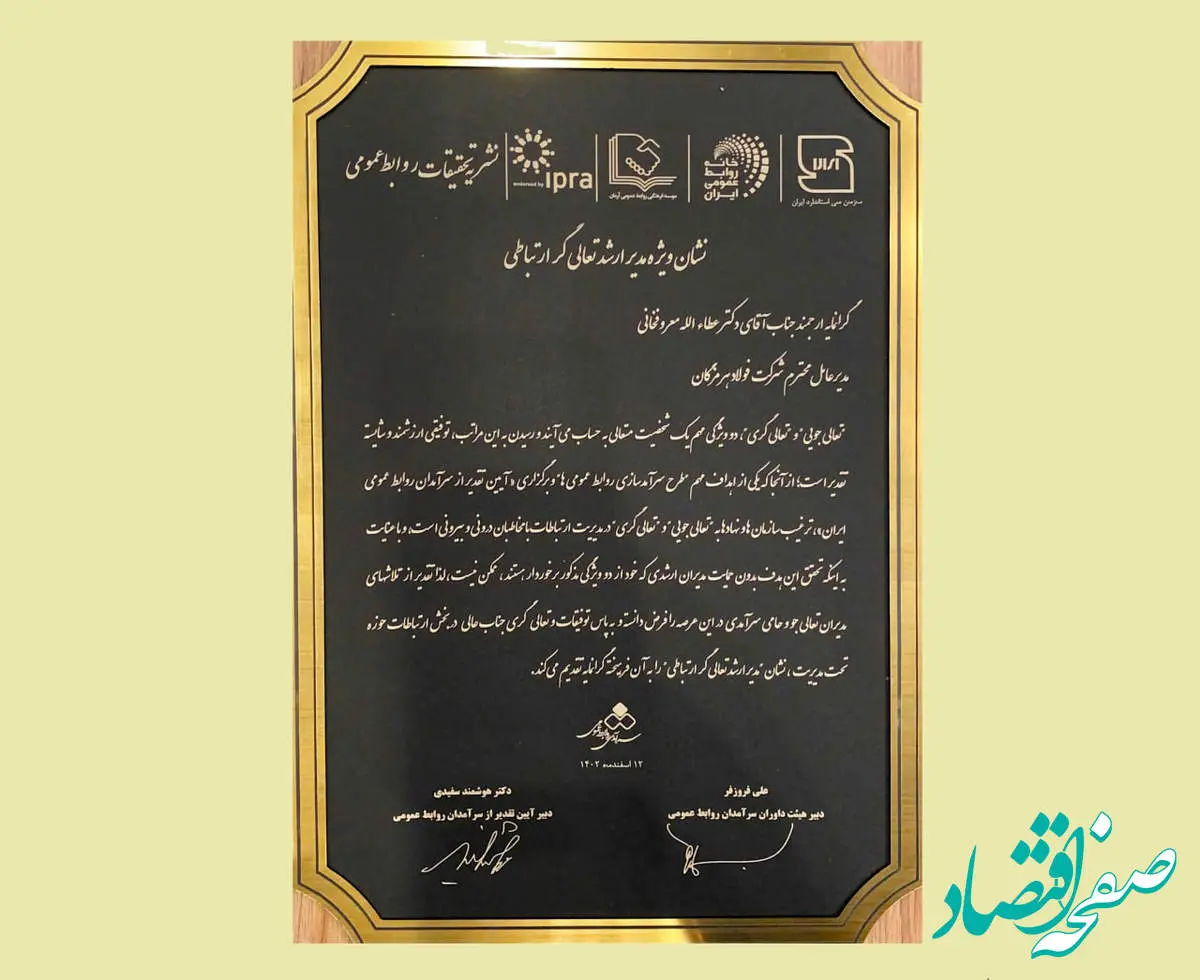 سازمان ملی استاندارد ایران
خانه
روابط
عمومی
ایران
موسسه فرهنگی روابط عمومی آرمان
endorsed by ipra
نشریه تحقیقات روابط عمومی
نشان ویژه مدیر ارشد تعالی گر ارتباطی
گرانمایه ارجمند جناب آقای دکتر عطاء الله معروفخانی
مدیرعامل محترم شرکت فولاد هرمزگان
"تعالی جویی" و "تعالی گری"، دو ویژگی مهم یک شخصیت متعالی به حساب می آیند و رسیدن به این مراتب، توفیقی ارزشمند و شایسته
تقدیر است؛ از آنجا که یکی از اهداف مهم "طرح سرآمدسازی روابط عمومی ها" و برگزاری «آیین تقدیر از سرآمدان روابط عمومی
ایران»، ترغیب سازمان ها و نهادها به "تعالی جویی" و "تعالی گری" در مدیریت ارتباطات با مخاطبان درونی و بیرونی است، و با عنایت
به اینکه تحقق این هدف بدون حمایت مدیران ارشدی که خود از دو ویژگی مذکور برخوردار هستند، ممکن نیست، لذا تقدیر از تلاشهای
مدیران تعالی جو و حامی سرآمدی در این عرصه را فرض دانسته و به پاس توفیقات و تعالی گری جناب عالی در بخش ارتباطات حوزه
تحت مدیریت، نشان "مدیر ارشد تعالی گر ارتباطی" را به آن فرهیخته گرانمایه تقدیم می کند.
سرآمدی روابط عمومی
۱۲ اسفندماه ۱۴۰۲
علی فروزفر
دبیر هیئت داوران سرآمدان روابط عمومی
دکتر هوشمند سفیدی
دبیر آیین تقدیر از سرآمدان روابط عمومی
صفحه اقتصاد